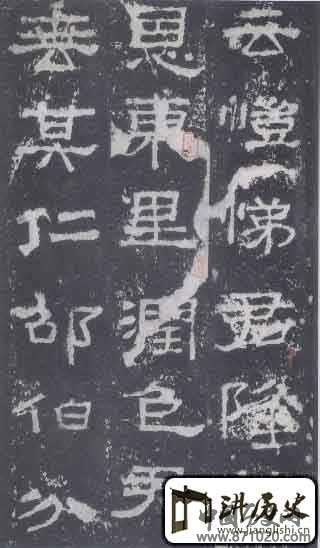 云愷悌君隆
恩東里潤色
垂其仁邵伯分
讲历史
www.jianglishi.cn
www.871020.com